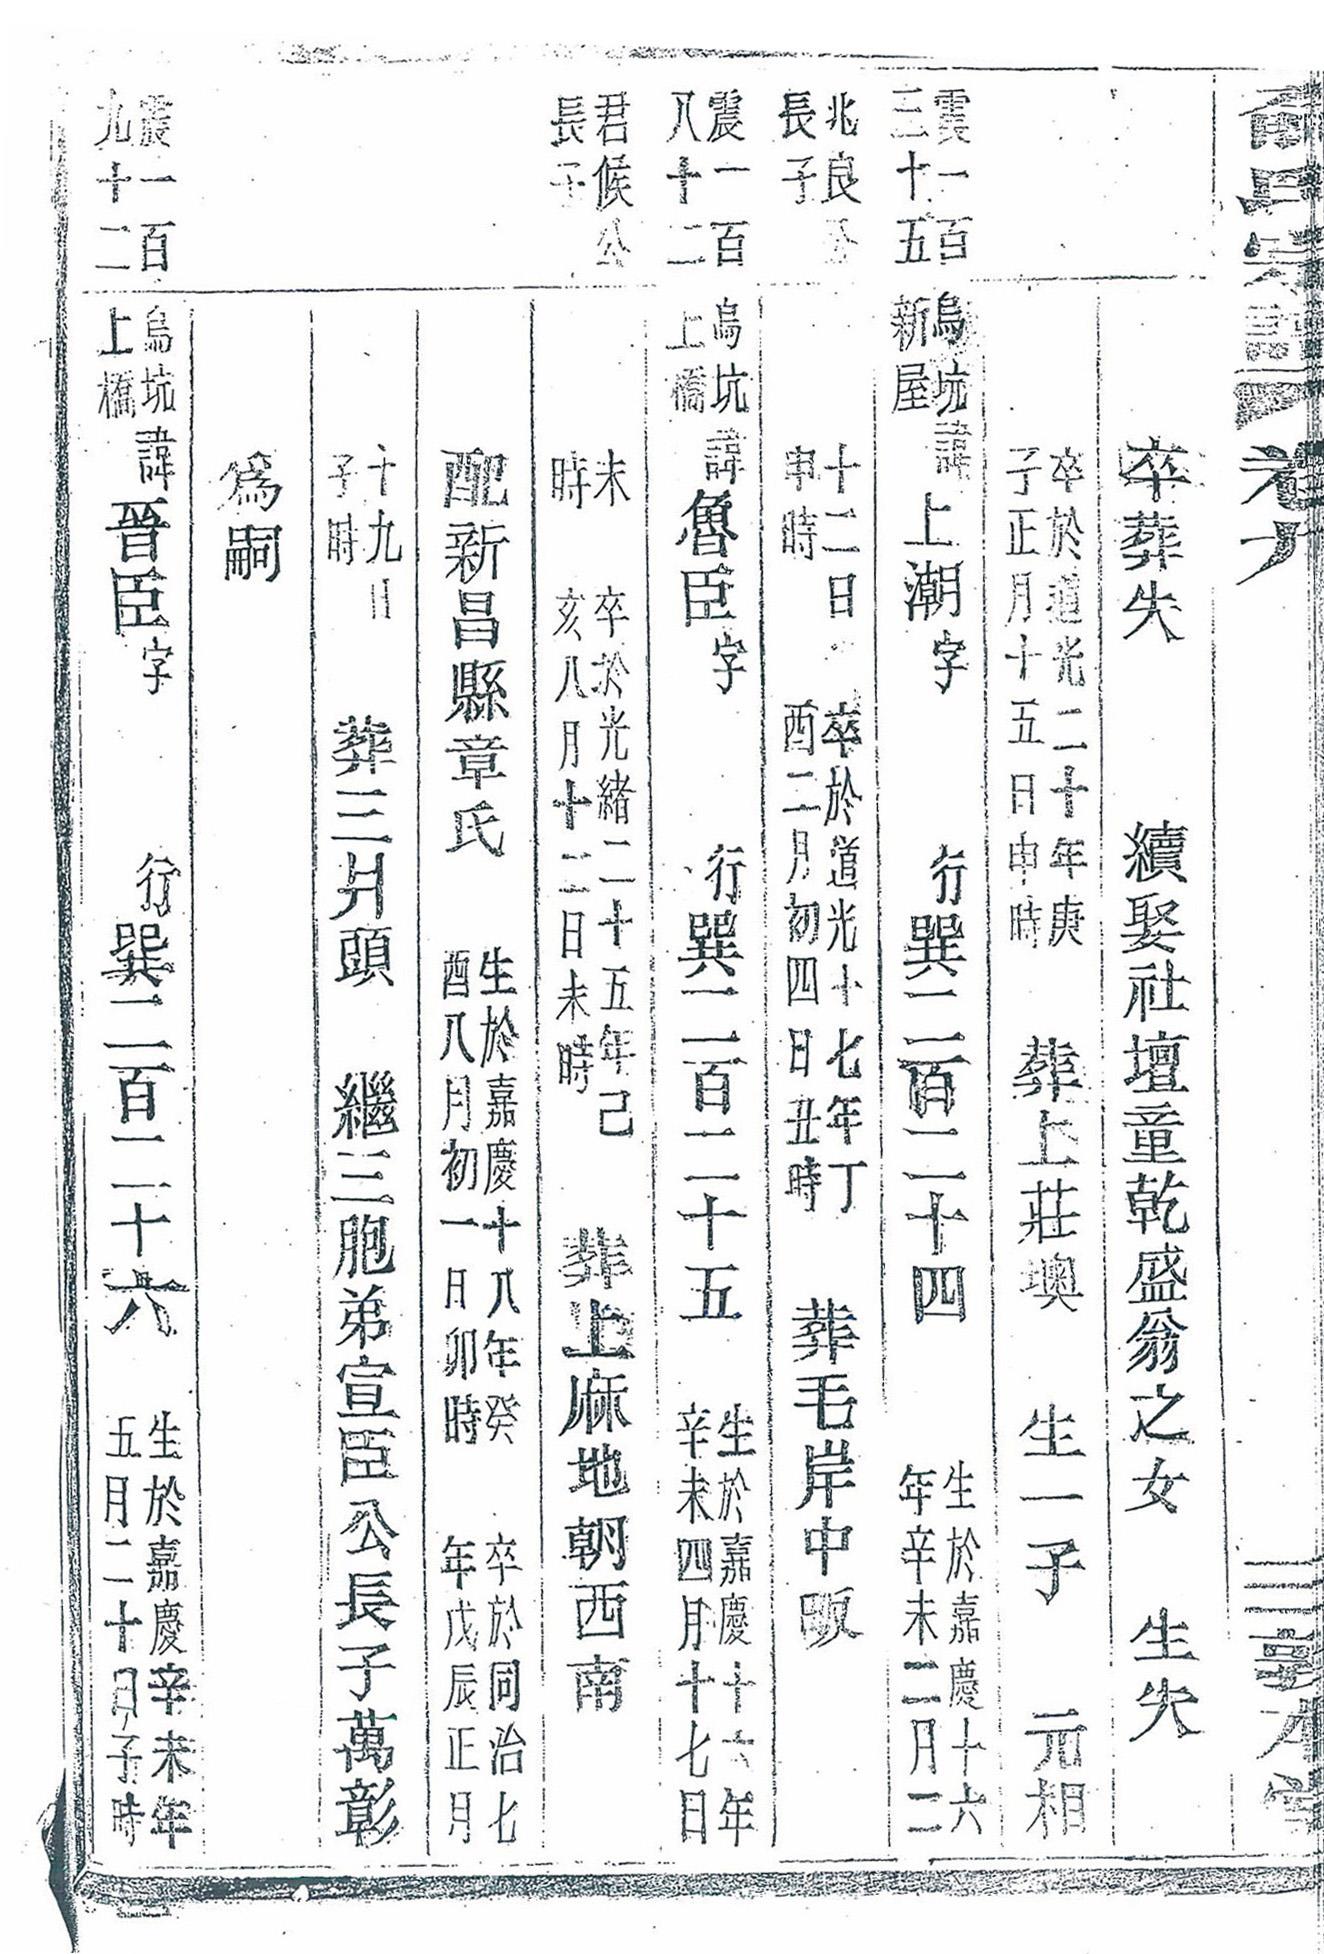 氏宗譜 卷九 三 敦本堂
卒葬失 續娶社壇童乾盛翁之女 生失
卒於道光二十年庚
子正月十五日申時 葬上莊墺 生一子 元相
震一百
三十五
烏坑
新屋
諱上潮字 行巽一二百二十四 生於嘉慶十六
年辛未二月二
兆良公
長子
十二日
申時 卒於道光十七年丁
酉二月初四日丑時 葬毛岸中畈
震一百
八十二
烏坑
上橋
諱魯臣字 行巽一二百二十五 生於嘉慶十六年
辛未四月十七日
君候公
長子
未
時 卒於光緒二十五年己
亥八月十二日未時 葬上麻地朝西南
配新昌縣章氏 生於嘉慶十八年癸
酉八月初一日卯時 卒於同治七
年戊辰正月
十九日
子時 葬三爿頭 繼三胞弟宣臣公長子萬彰
為嗣
震一百
九十二
烏坑
上橋
諱晉臣字 行巽一二百二十六 生於嘉慶辛未年
五月二十日子時